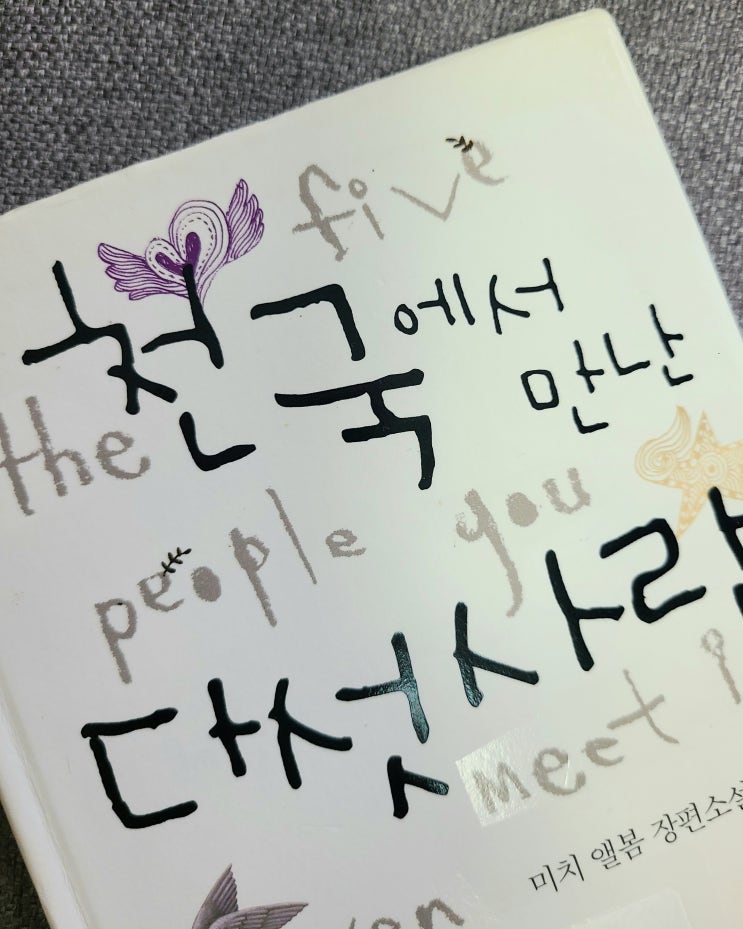 five
천국에서
만난
the
people you
다섯 사람
meet i
미치 앨봄 장편소설
ven